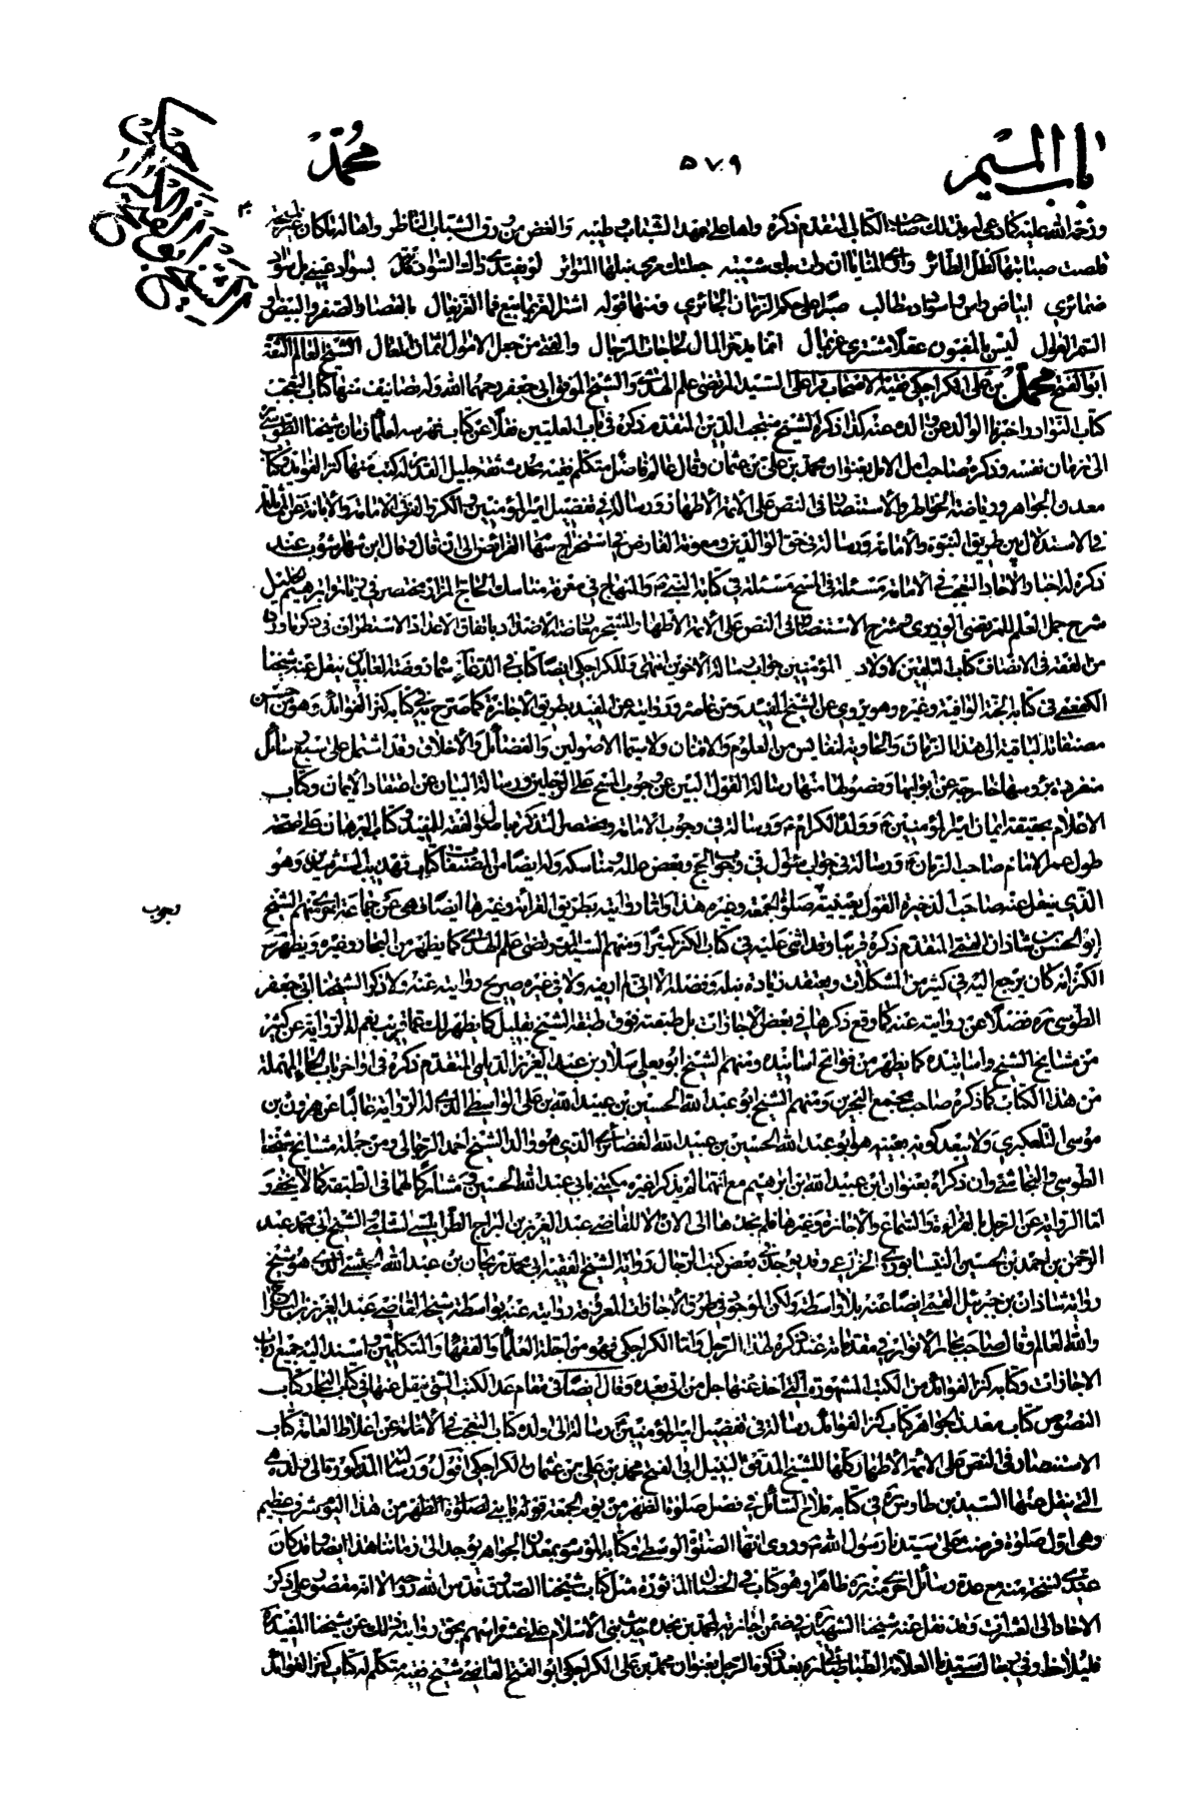 باب الميم
٥٧٩
محمد
الشيخ ابو الفتح الكراجكى
ورحمة الله عليه كتاب المتقدم ذكره واها على عهد الشباب وطيبه والغض من ورق الشباب الناظر واها له ما كان غير
قلصت صبابتها كظل الطائر وارى المنايا ان رأت بك شيبة جعلتك مرمى نبلها المتواتر لو يفتدى ذاك السواد فديته بسواد عينى بل سواد
ضمائرى ابياض رأس واسوداد مطالب صبرا على حكم الزمان الجائر ومنها قوله اشتر العز بما بيع فما العز بغال بالقصار الصفر والبيض او
السمر الطوال ليس بالمغبون عقلا مشترى عز بمال انما يدخر المال لحاجات الرجال والفتى من جعل الاموال اثمان المعال الشيخ العالم الثقة
ابو الفتح محمد بن على الكراجكى فقيه الاصحاب قرأ على السيد المرتضى علم الهدى والشيخ الموفق ابى جعفر رحمهما الله وله تصانيف منها كتاب التعجب
كتاب النوادر اخبرنا الوالد عن والده عنه كذا ذكره الشيخ منتجب الدين المتقدم ذكره فى باب العليين نقلا عن كتاب فهرسه لعلماء زمان شيخنا الطوسى
الى زمان نفسه وذكره صاحب امل الامل بعنوان محمد بن على بن عثمان وقال عالم فاضل متكلم فقيه محدث ثقة جليل القدر له كتب منها كنز الفوائد كتاب
معدن الجواهر ورياضة الخواطر والاستنصار فى النص على الائمة الاطهار ورسالة فى تفضيل امير المؤمنين والكر والفر فى الامامة والابانة عن المماثلة
فى الاستدلال بين طريق النبوة والامامة ورسالة فى حق الوالدين ومعونة الفارض فى استخراج سهام الفرائض الى ان قال وقال ابن شهر اشوب عند
ذكره له اخبار الاحاد التعجب فى الامامة مسئلة فى المسح مسئلة فى كتابة النبى والمنهاج فى معرفة مناسك الحاج المزار مختصر فى زيارة ابرهيم الخليل
شرح جمل العلم للمرتضى الوزيرى شرح الاستنصار فى النص على الائمة الاطهار
من الفقه فى الانصاف كتاب التلقين لاولاد المؤمنين جواب رسالة الاخوين انتهى وللكراجكى ايضا كتاب فى الدعاء سماه روضة العابدين ينقل عنه شيخنا
الكفعمى فى كتابه الجنة الواقية وغيره وهو يروى عن الشيخ المفيد ومن عاصره وروايته عن المفيد بطريق الاجازة كما صرح به فى كتابه كنز الفوائد وهو من احسن
مصنفاته الباقية الى هذا الزمان والحاوية لنفايس من العلوم والافنان ولا سيما الاصولين والفضائل والاخلاق وقد اشتمل على سبع رسائل
منفردة برؤسها خارجة عن ابوابها وفصولها منها رسالة القول المبين عن وجوب المسح على الرجلين ورسالة البيان عن اعتقاد الايمان وكتاب
الاعلام بحقيقة ايمان امير المؤمنين وولده الكرام ورسالة فى وجوب الامامة ومختصر التذكرة باصول الفقه للمفيد وكتاب البرهان على صحة
طول عمر الامام صاحب الزمان ورسالة فى جواب سؤال فى وجوب الحج وبعض علله ومناسكه وله ايضا من المصنفات كتاب تهذيب المسترشدين وهو
الذى ينقل عنه صاحب الذخيرة القول بعينية صلوة الجمعة وغيره هذا واما روايته بطريق القرائة وغيرها ايضا فهى عن جماعة اخرى منهم الشيخ
ابو الحسن بن شاذان القمى المتقدم ذكره قريبا وقد اثنى عليه فى كتاب الكنز كثيرا ومنهم السيد المرتضى علم الهدى كما يظهر من البحار وغيره ويظهر من
الكنز انه كان يرجع اليه فى كثير من المشكلات ويعتقد زيادة نبله وفضله الا انى لم ار فيه ولا فى غيره صريح روايته عنه ولا ذكرا لشيخنا ابى جعفر
الطوسى ره فضلا عن روايته عنه كما وقع ذكرها فى بعض الاجازات بل طبقته فوق طبقة الشيخ بقليل كما يظهر لك عما قريب نعم له الرواية عن كثير
من مشايخ الشيخ واساتيده كما يظهر من فواتح اسانيده ومنهم الشيخ ابو يعلى سلار بن عبد العزيز الديلمى المتقدم ذكره فى اواخر باب الحاء المهملة
من هذا الكتاب كما ذكره صاحب مجمع البحرين ومنهم الشيخ ابو عبد الله الحسين بن عبيد الله بن على الواسطى الذى له الرواية غالبا عن هرون بن
موسى التلعكبرى ولا يبعد كونه بعينه هو ابو عبد الله الحسين بن عبيد الله الغضائرى الذى هو والد الشيخ احمد الرجالى ومن جملة مشايخ شيخنا
الطوسى والنجاشى وان ذكراه بعنوان ابن عبيد الله بن ابرهيم مع انهما لم يذكرا غيره مكنى بابى عبد الله الحسين فى مشاركا لهما فى الطبقة كما لا يخفى و
اما الرواية عن الرجل بالقراءة والسماع والاجازة وغيرها فلم نجدها الى الان الا للقاضى عبد العزيز بن البراج الطرابلسى الشامى والشيخ ابى محمد عبد
الرحمن بن احمد بن الحسين النيسابورى الخزاعى وقد يوجد فى بعض كتب الرجال رواية الشيخ الفقيه ابى محمد ريحان بن عبد الله الحبشى الذى هو شيخ
رواية شاذان بن جبرئيل القمى ايضا عنه بلا واسطة ولكن الموجود فى طرق الاجازات المعروفة روايته عنه بواسطة شيخه القاضى عبد العزيز بن البراج
والله العالم وقال صاحب بحار الانوار فى مقدماته عند ذكره لهذا الرجل واما الكراجكى فهو من اجلة العلماء والفقهاء والمتكلمين اسند اليه جميع ارباب
الاجازات وكتابه كنز الفوائد من الكتب المشهورة التى اخذ عنها جل من اتى بعده وقال ايضا فى مقام عد الكتب التى ينقل عنها فى كتاب البحار كتاب
النصوص كتاب معدن الجواهر كتاب كنز الفوائد رسالة فى تفضيل امير المؤمنين رسالة الى ولده كتاب التعجب فى الامامة من اغلاط العامة كتاب
الاستنصار فى النص على الائمة الاطهار كلها للشيخ المدقق النبيل ابى الفتح محمد بن على بن عثمان الكراجكى اقول ورسالته المذكورة الى ولده هى
التى ينقل عنها السيد بن طاوس ره فى كتابه فلاح السائل فى فضل صلوة الظهر من يوم الجمعة قوله يا بنى لصلوة الظهر من هذا اليوم شرف عظيم
وهى اول صلوة فرضت على سيدنا رسول الله ص وروى انها الصلوة الوسطى وكتابه الموسوم بمعدن الجواهر يوجد الى زماننا هذا ايضا وقد كان
عندى نسخة منه مع عدة رسائل اخرى منه ره ظاهرا وهو كتاب فى الخصال الماثورة مثل كتاب شيخنا الصدوق قدس الله روحه الا انه مقصور على ذكر
الاحاد الى العشرات وقد نقل عنه شيخنا الشهيد ره فى ضمن اجازته لمحمد بن نجدة حديث بنى الاسلام على عشرة اسهم بحق روايته ذلك عن شيخنا المفيد ره
فليلاحظ وفى رجال سيدنا العلامة الطباطبائى ره بعد ذكره الرجل بعنوان محمد بن على الكراجكى ابو الفتح القاضى شيخ فقيه متكلم له كتاب كنز الفوائد
وجوب